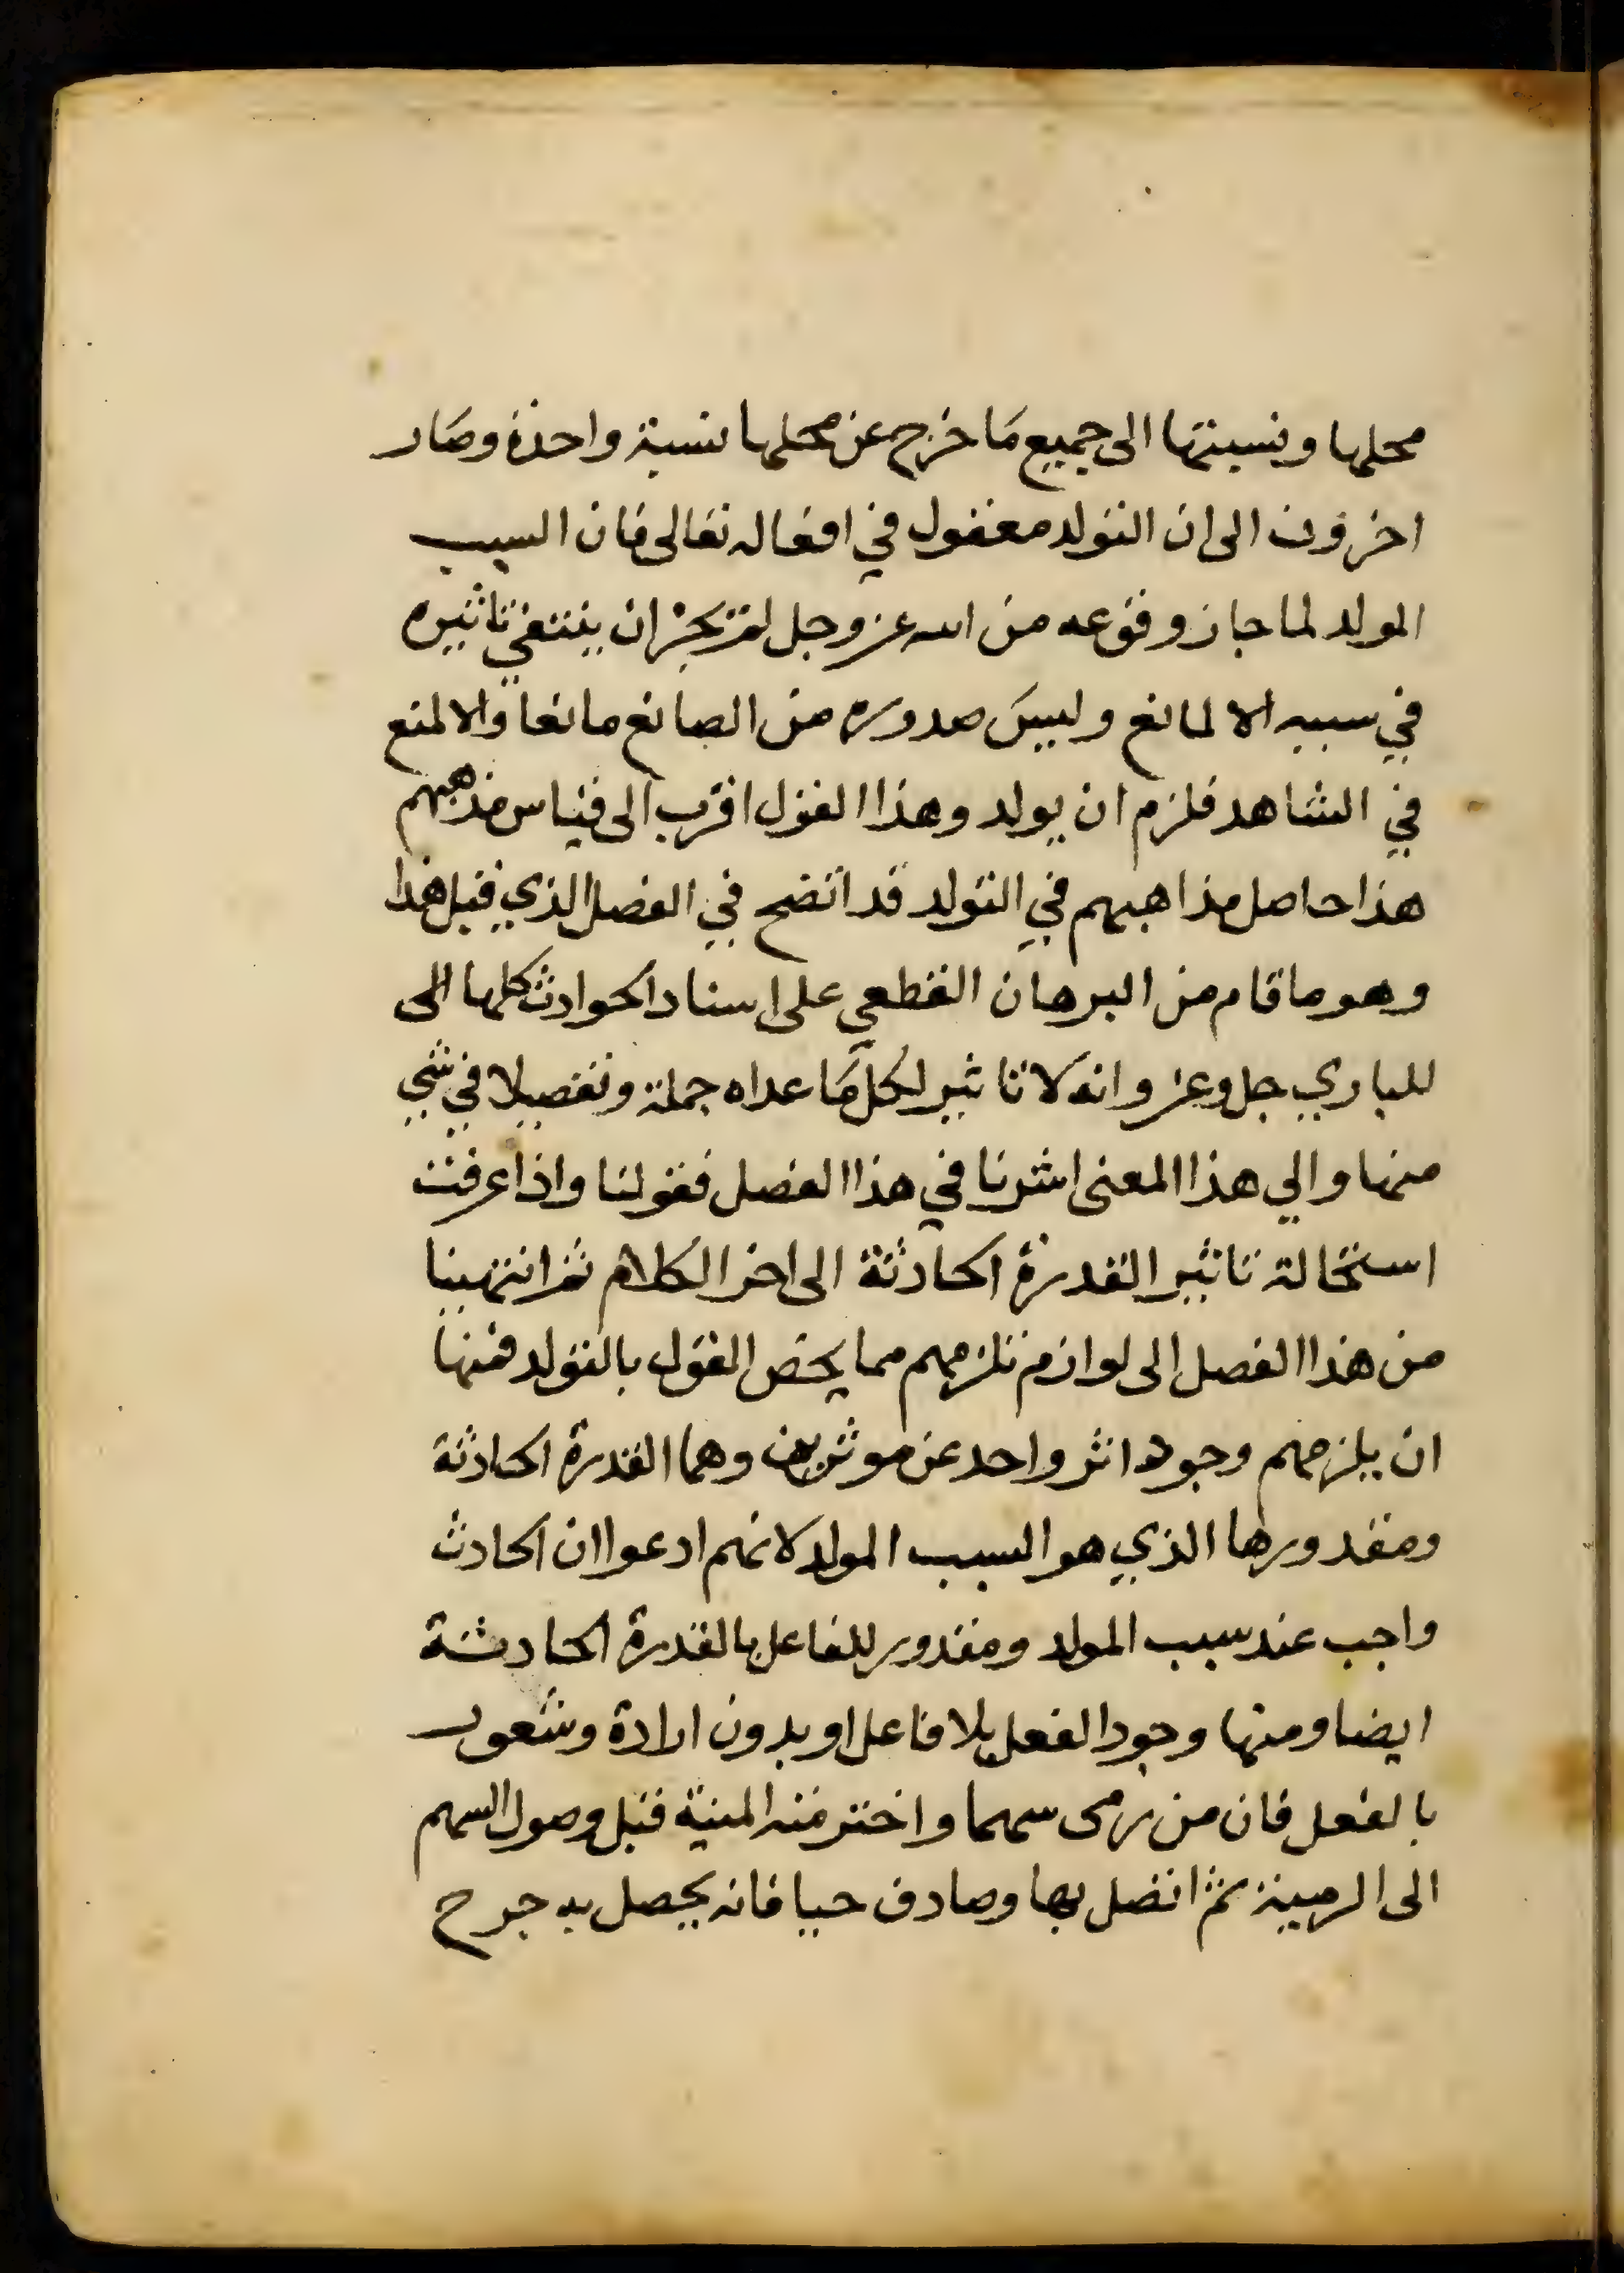 محلها ونسبتها الى جميع ما خرج عن محلها نسبة واحدة وصار
اخرون الى ان التولد معقول في افعاله تعالى فان السبب
المولد لما جاز وقوعه من الله عز وجل لم يجز ان ينتفي تاثيره
في سببه الا لمانع وليس صدوره من الصانع مانعا والا لمنع
في الشاهد فلزم ان يولد وهذا القول اقرب الى قياس مذهبهم
هذا حاصل مذاهبهم في التولد قد اتضح في الفصل الذي قبل هذا
وهو ما قام من البرهان القطعي على اسناد الحوادث كلها الى
للباري جل وعز وانه لا تاثير لكل ما عداه جملة وتفصيلا في شي
منها والي هذا المعنى اشرنا في هذا الفصل فقولنا واذا عرفت
استحالة تاثير القدرة الحادثة الى اخر الكلام ثم انتهينا
من هذا الفصل الى لوازم تلزمهم مما يخص القول بالتولد فمنها
ان يلزمهم وجود اثر واحد عن موثرين وهما القدرة الحادثة
ومقدورها الذي هو السبب المولد لانهم ادعوا ان الحادث
واجب عند سبب المولد ومقدور للفاعل بالقدرة الحادثة
ايضا ومنها وجود الفعل بلا فاعل او بدون ارادة وشعور
بالفعل فان من رمى سهما واخترمته المنية قبل وصول السهم
الى الرمية ثم اتصل بها وصادف حيا فانه يحصل به جرح